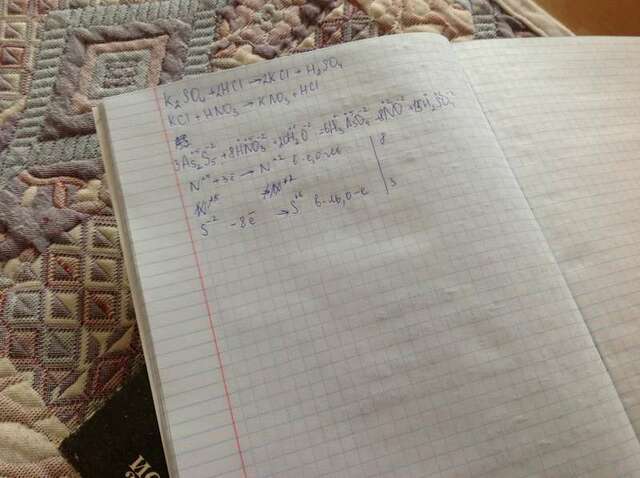 K₂SO₄ + 2HCl → 2KCl + H₂SO₄
KCl + HNO₃ → KNO₃ + HCl
3As₂⁺⁵S₅⁻² + 8HNO₃⁻² + 20H₂O⁻² = 6H₃AsO₄⁻² + NO⁻² + 15H₂SO₄⁻²
N⁺⁵ + 3ē → N⁺² 8
S⁻² - 8ē → S⁺⁶ 3